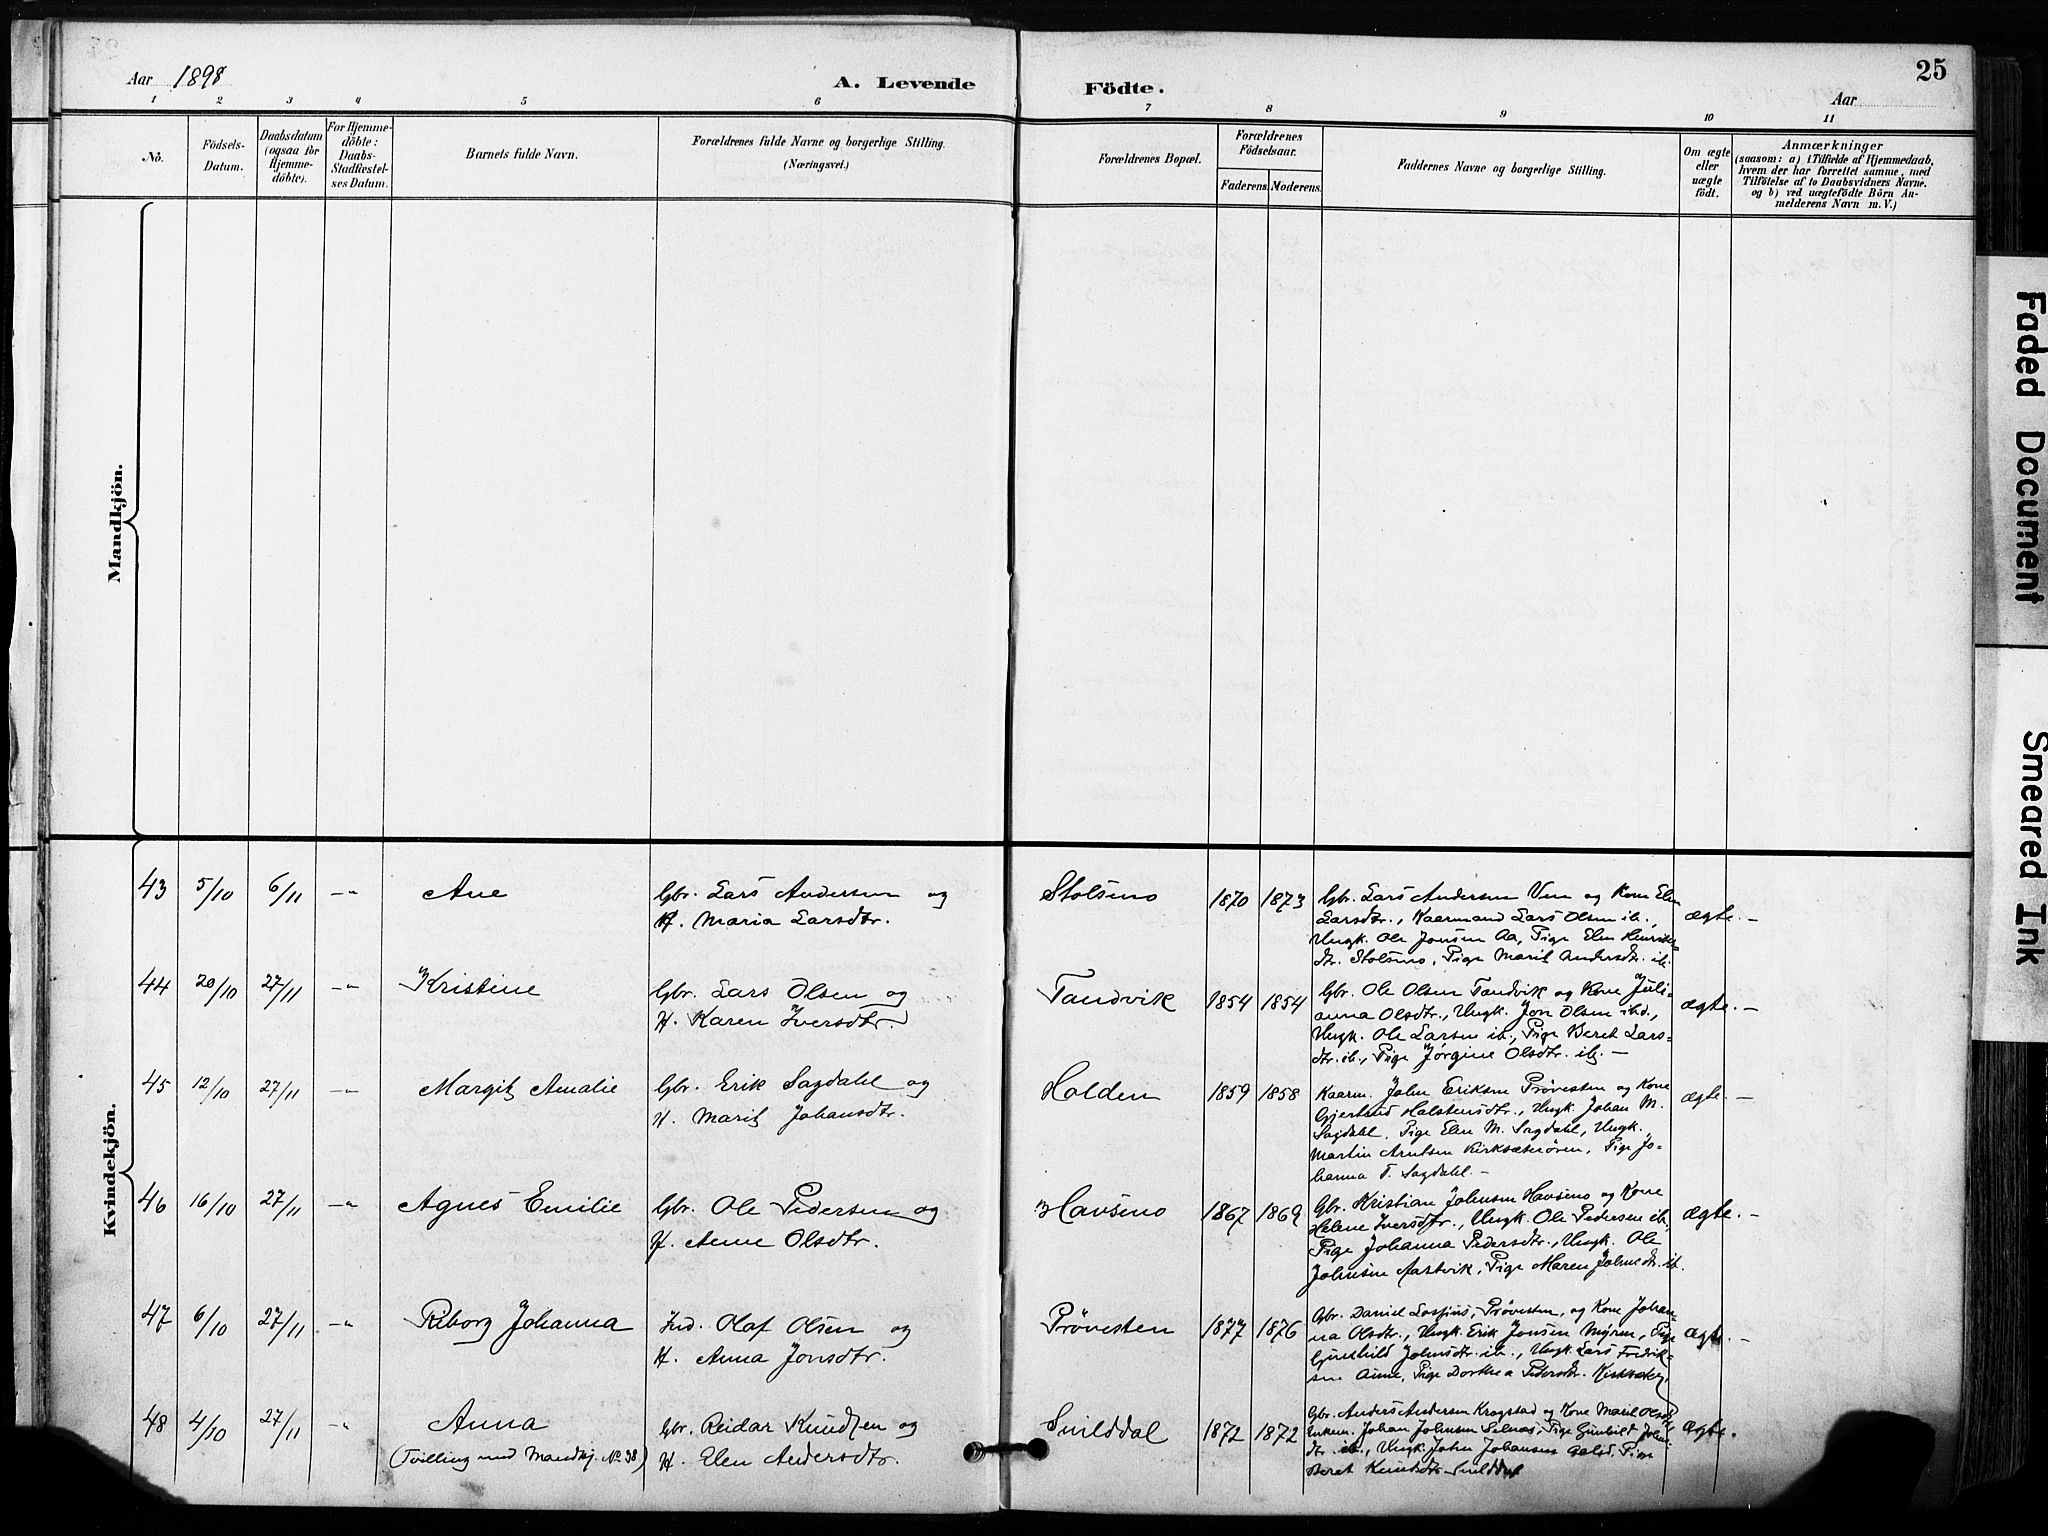 25
Aar 1898
A. Levende Födte.
Aar
1 2 3 4 5 6 7 8 9 10 11
No.
Födsels-
Datum.
Daabsdatum
(ogsaa for
Hjemme-
döbte).
For Hjemme-
döbte:
Daabs-
Stadfæstel-
ses Datum.
Barnets fulde Navn.
Forældrenes fulde Navne og borgerlige Stilling.
(Næringsvei.)
Forældrenes Bopæl.
Forældrenes
Födselsaar.
Faderens. Moderens.
Faddernes Navne og borgerlige Stilling.
Om ægte
eller
uægte
födt.
Anmærkninger
(saasom: a) i Tilfælde af Hjemmedaab,
hvem der har forrettet samme, med
Tilföielse af to Daabsvidners Navne.
og b) ved uægtefödte Börn An-
melderens Navn m. V.)
Mandkjön.
Kvindekjön.
43 5/10 6/11 -"- Ane
Gbr. Lars Andersen og
H. Maria Larsdtr.
Stolsmo 1870 1873
Gbr. Lars Andersen Ven og Kone Elen
Larsdtr., Kaarmand Lars Olsen ib.,
Ungk. Ole Jonsen Aa, Pige Elen Henriks-
dtr. Stolsmo, Pige Marit Andersdtr. ib.
ægte. -
44 20/10 27/11 -"- Kristine
Gbr. Lars Olsen og
H. Karen Iversdtr.
Tandvik 1854 1854
Gbr. Ole Olsen Tandvik og Kone Juli-
anna Olsdtr., Ungk. Jon Olsen ibd.,
Ungk. Ole Larsen ib., Pige Beret Lars-
dtr. ib., Pige Jörgine Olsdtr. ib. -
ægte. -
45 12/10 27/11 -"- Margit Amalie
Gbr. Erik Sagdahl og
H. Marit Johansdtr.
Holden 1859 1858
Kaarm. John Eriksen Prövesten og Kone
Gjertrud Halstensdtr., Ungk. Johan M.
Sagdahl, Pige Elen M. Sagdahl, Ungk.
Martin Arntsen Kirksæterören, Pige Jo-
hanna T. Sagdahl. -
ægte. -
46 16/10 27/11 -"- Agnes Emilie
Gbr. Ole Pedersen og
H. Anne Olsdtr.
Havsmo 1867 1869
Gbr. Kristian Johnsen Havsmo og Kone
Helene Iversdtr., Ungk. Ole Pedersen ib.
Pige Johanna Pedersdtr., Ungk. Ole
Johnsen Aastvik, Pige Maren Johnsdtr. ib.
ægte. -
47 6/10 27/11 -"- Riborg Johanna
Ind. Olaf Olsen og
H. Anna Jonsdtr.
Prövesten 1877 1876
Gbr. Daniel Prövesten, og Kone Johan-
na Olsdtr., Ungk. Erik Jonsen Myren, Pige
Gunhild Johnsdtr. ib., Ungk. Lars Fredrik-
sen Aune, Pige Dorthea Pedersdtr.
ægte. -
48 4/10 27/11 -"- Anna
(Tvilling med Mandkj. No 38)
Gbr. Reidar Knudsen og
H. Elen Andersdtr.
Snilddal 1872 1872
Gbr. Anders Andersen Krogstad og Kone Marit Olsdtr.
Enkem. Johan Johnsen Selnæs, Pige Gunhild John-
dtr. ib., Ungk. John Johansen Pige
Beret Knudsdtr. Snilddal
ægte.
Faded Document
Smeared Ink